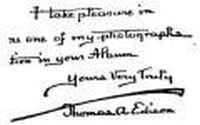 I take pleasure in
as one of my photographs
tion in your Album
Yours Very Truly
Thomas A Edison